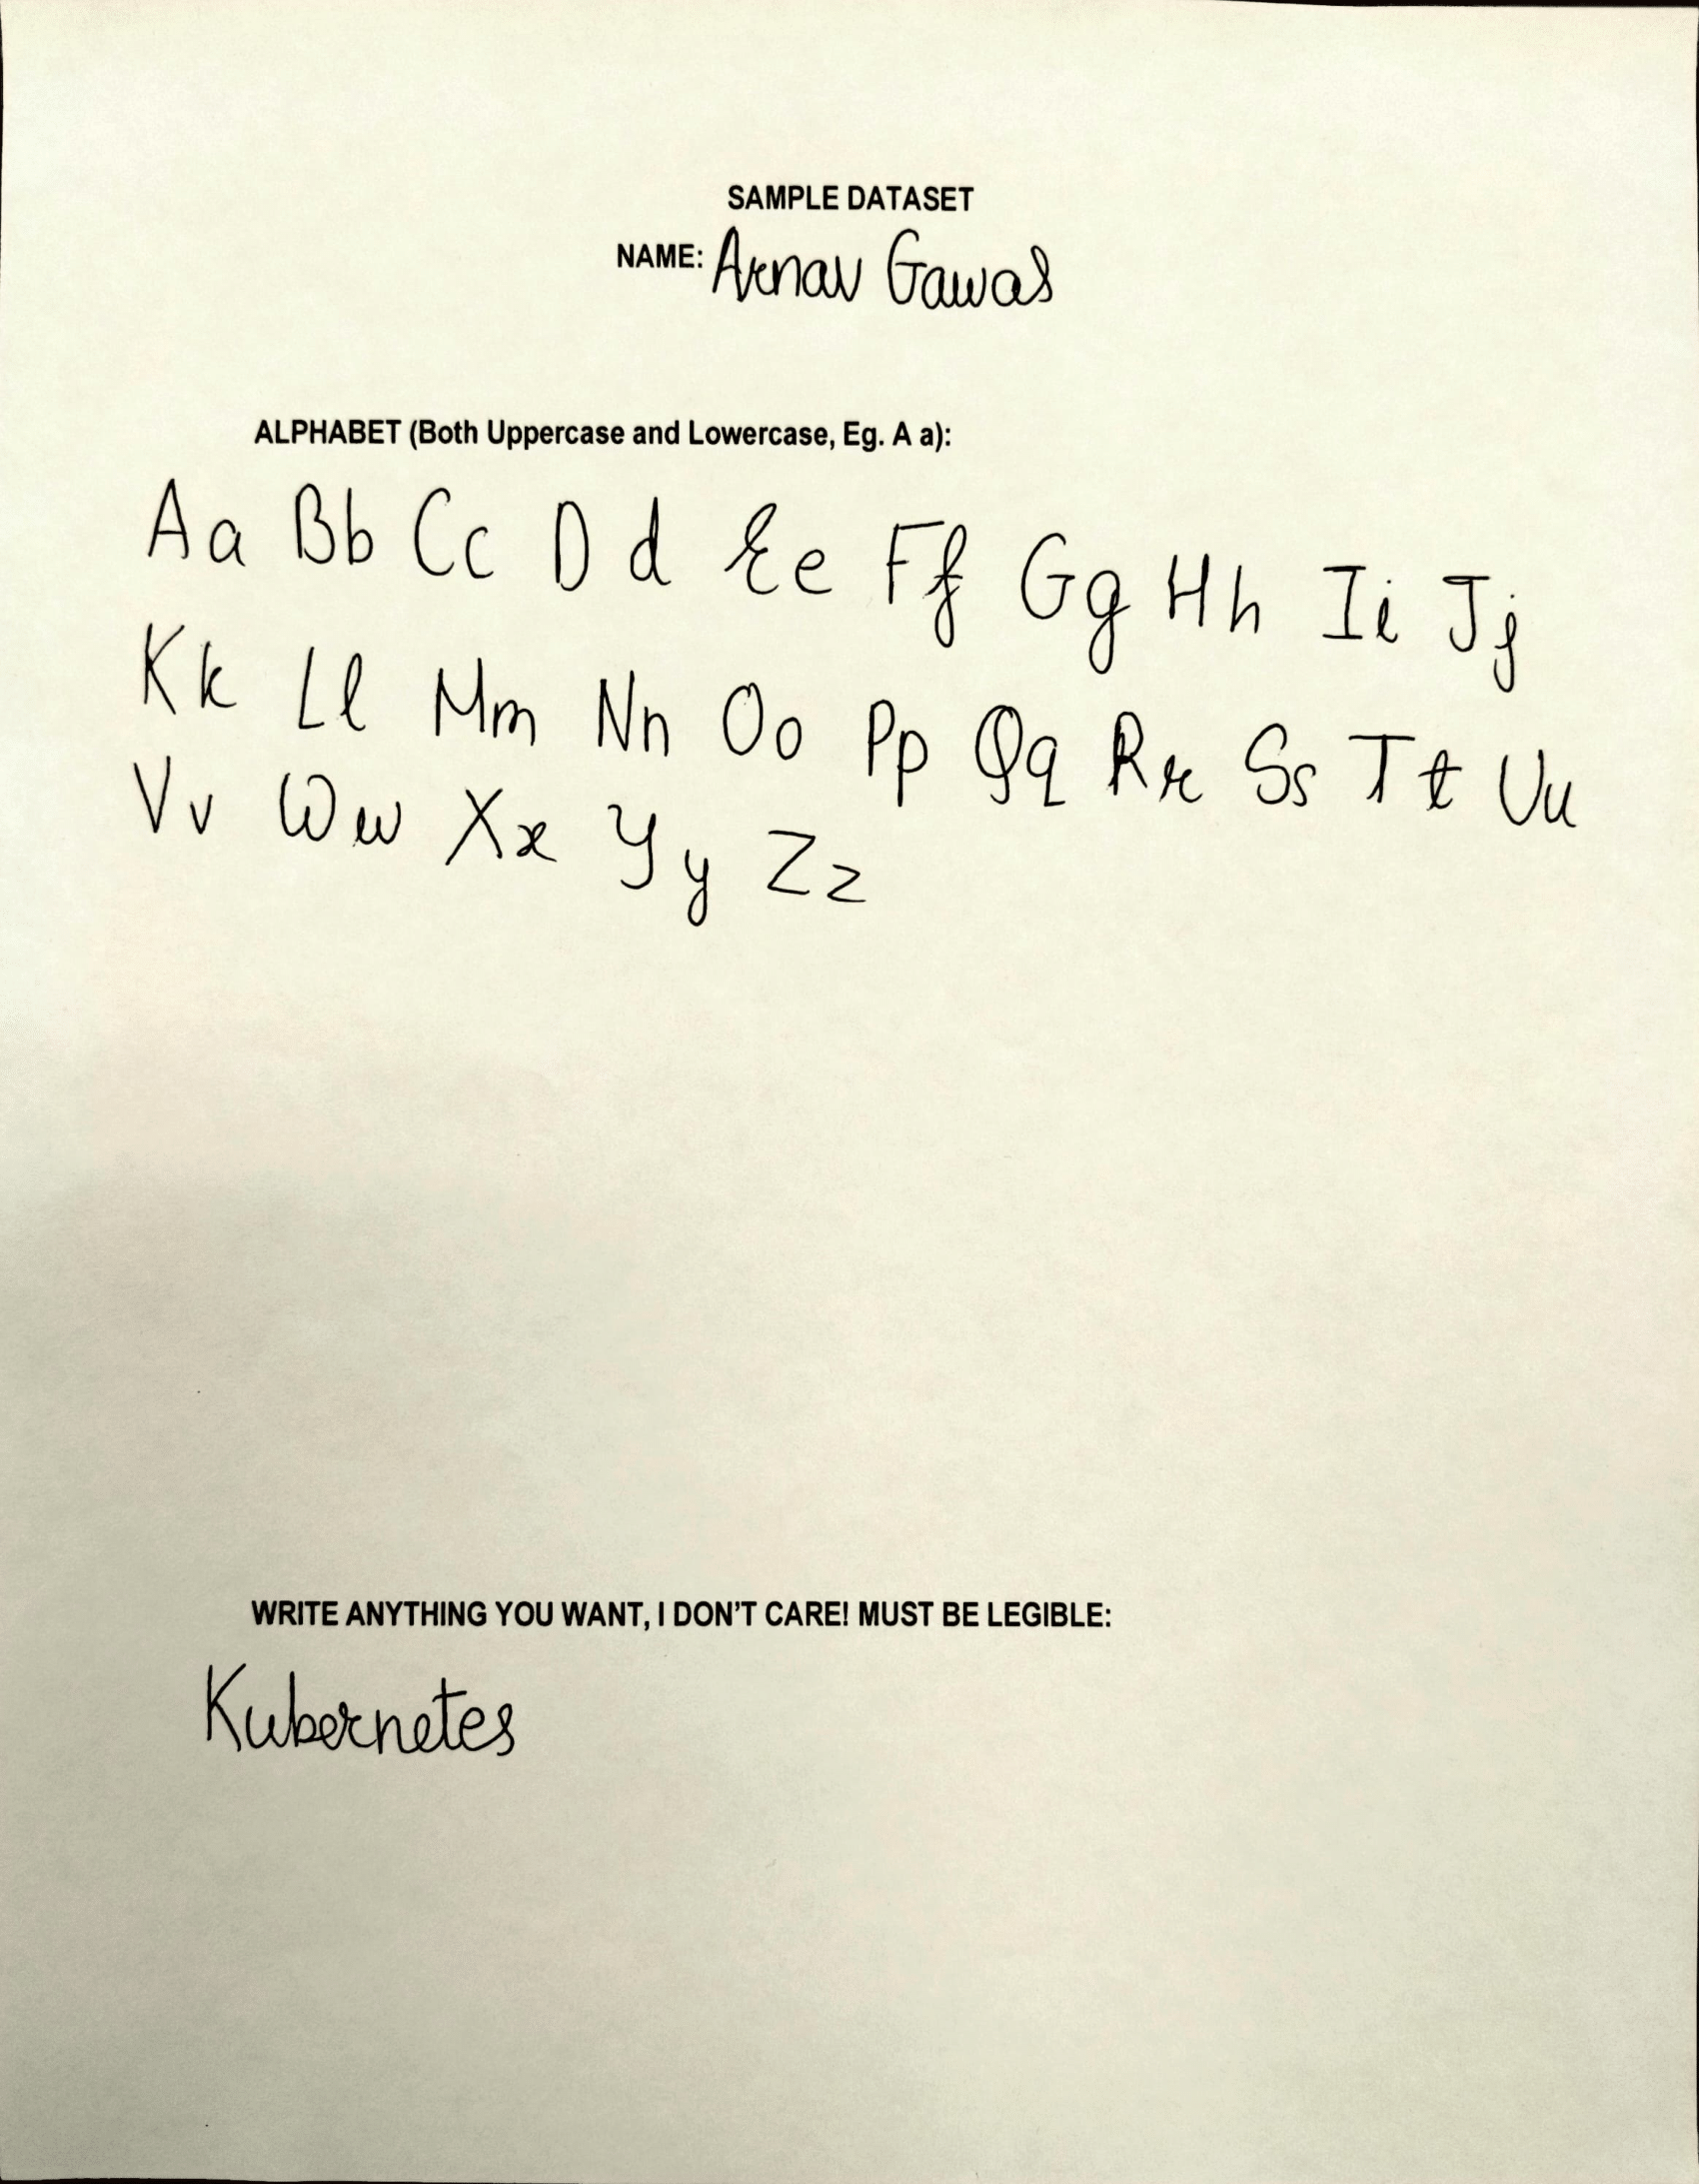 SAMPLE DATASET
NAME: Arnav Gawas
ALPHABET (Both Uppercase and Lowercase, Eg. A a):
Aa Bb Cc D d Ee Ff Gg Hh Ii Jj
Kk Ll Mm Nn Oo Pp Qq Rr Ss Tt Uu
Vv Ww Xx Yy Zz
WRITE ANYTHING YOU WANT, I DON'T CARE! MUST BE LEGIBLE:
Kubernetes